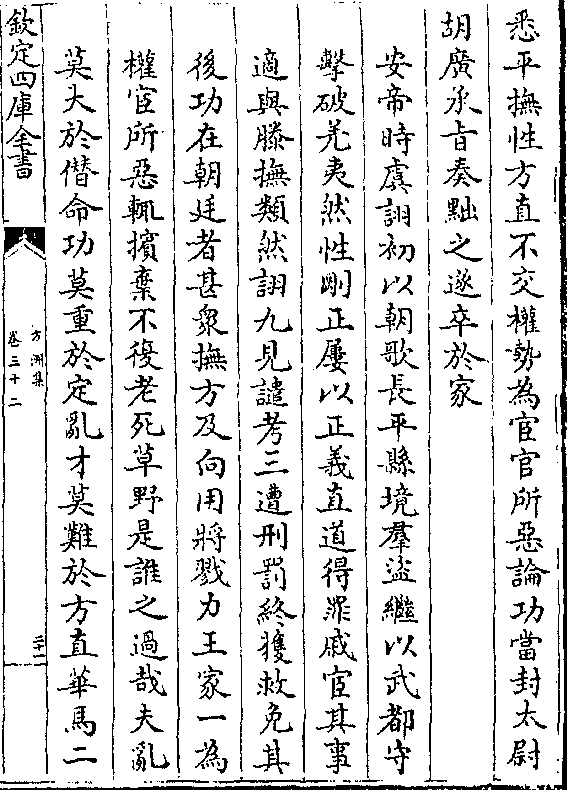 悉平撫性方直不交權勢為宦官所惡論功當封太尉
胡廣承旨奏黜之遂卒於家
安帝時虞詡初以朝歌長平縣境羣盜繼以武都守
擊破羌夷然性剛正屢以正義直道得罪戚宦其事
適與滕撫類然詡九見譴考三遭刑罰終獲救免其
後功在朝廷者甚衆撫方及向用將戮力王家一為
權宦所惡輒擯棄不復老死草野是誰之過哉夫亂
莫大於僭命功莫重於定亂才莫難於方直華馬二
欽定四庫全書
方洲集
卷三十二
二十一